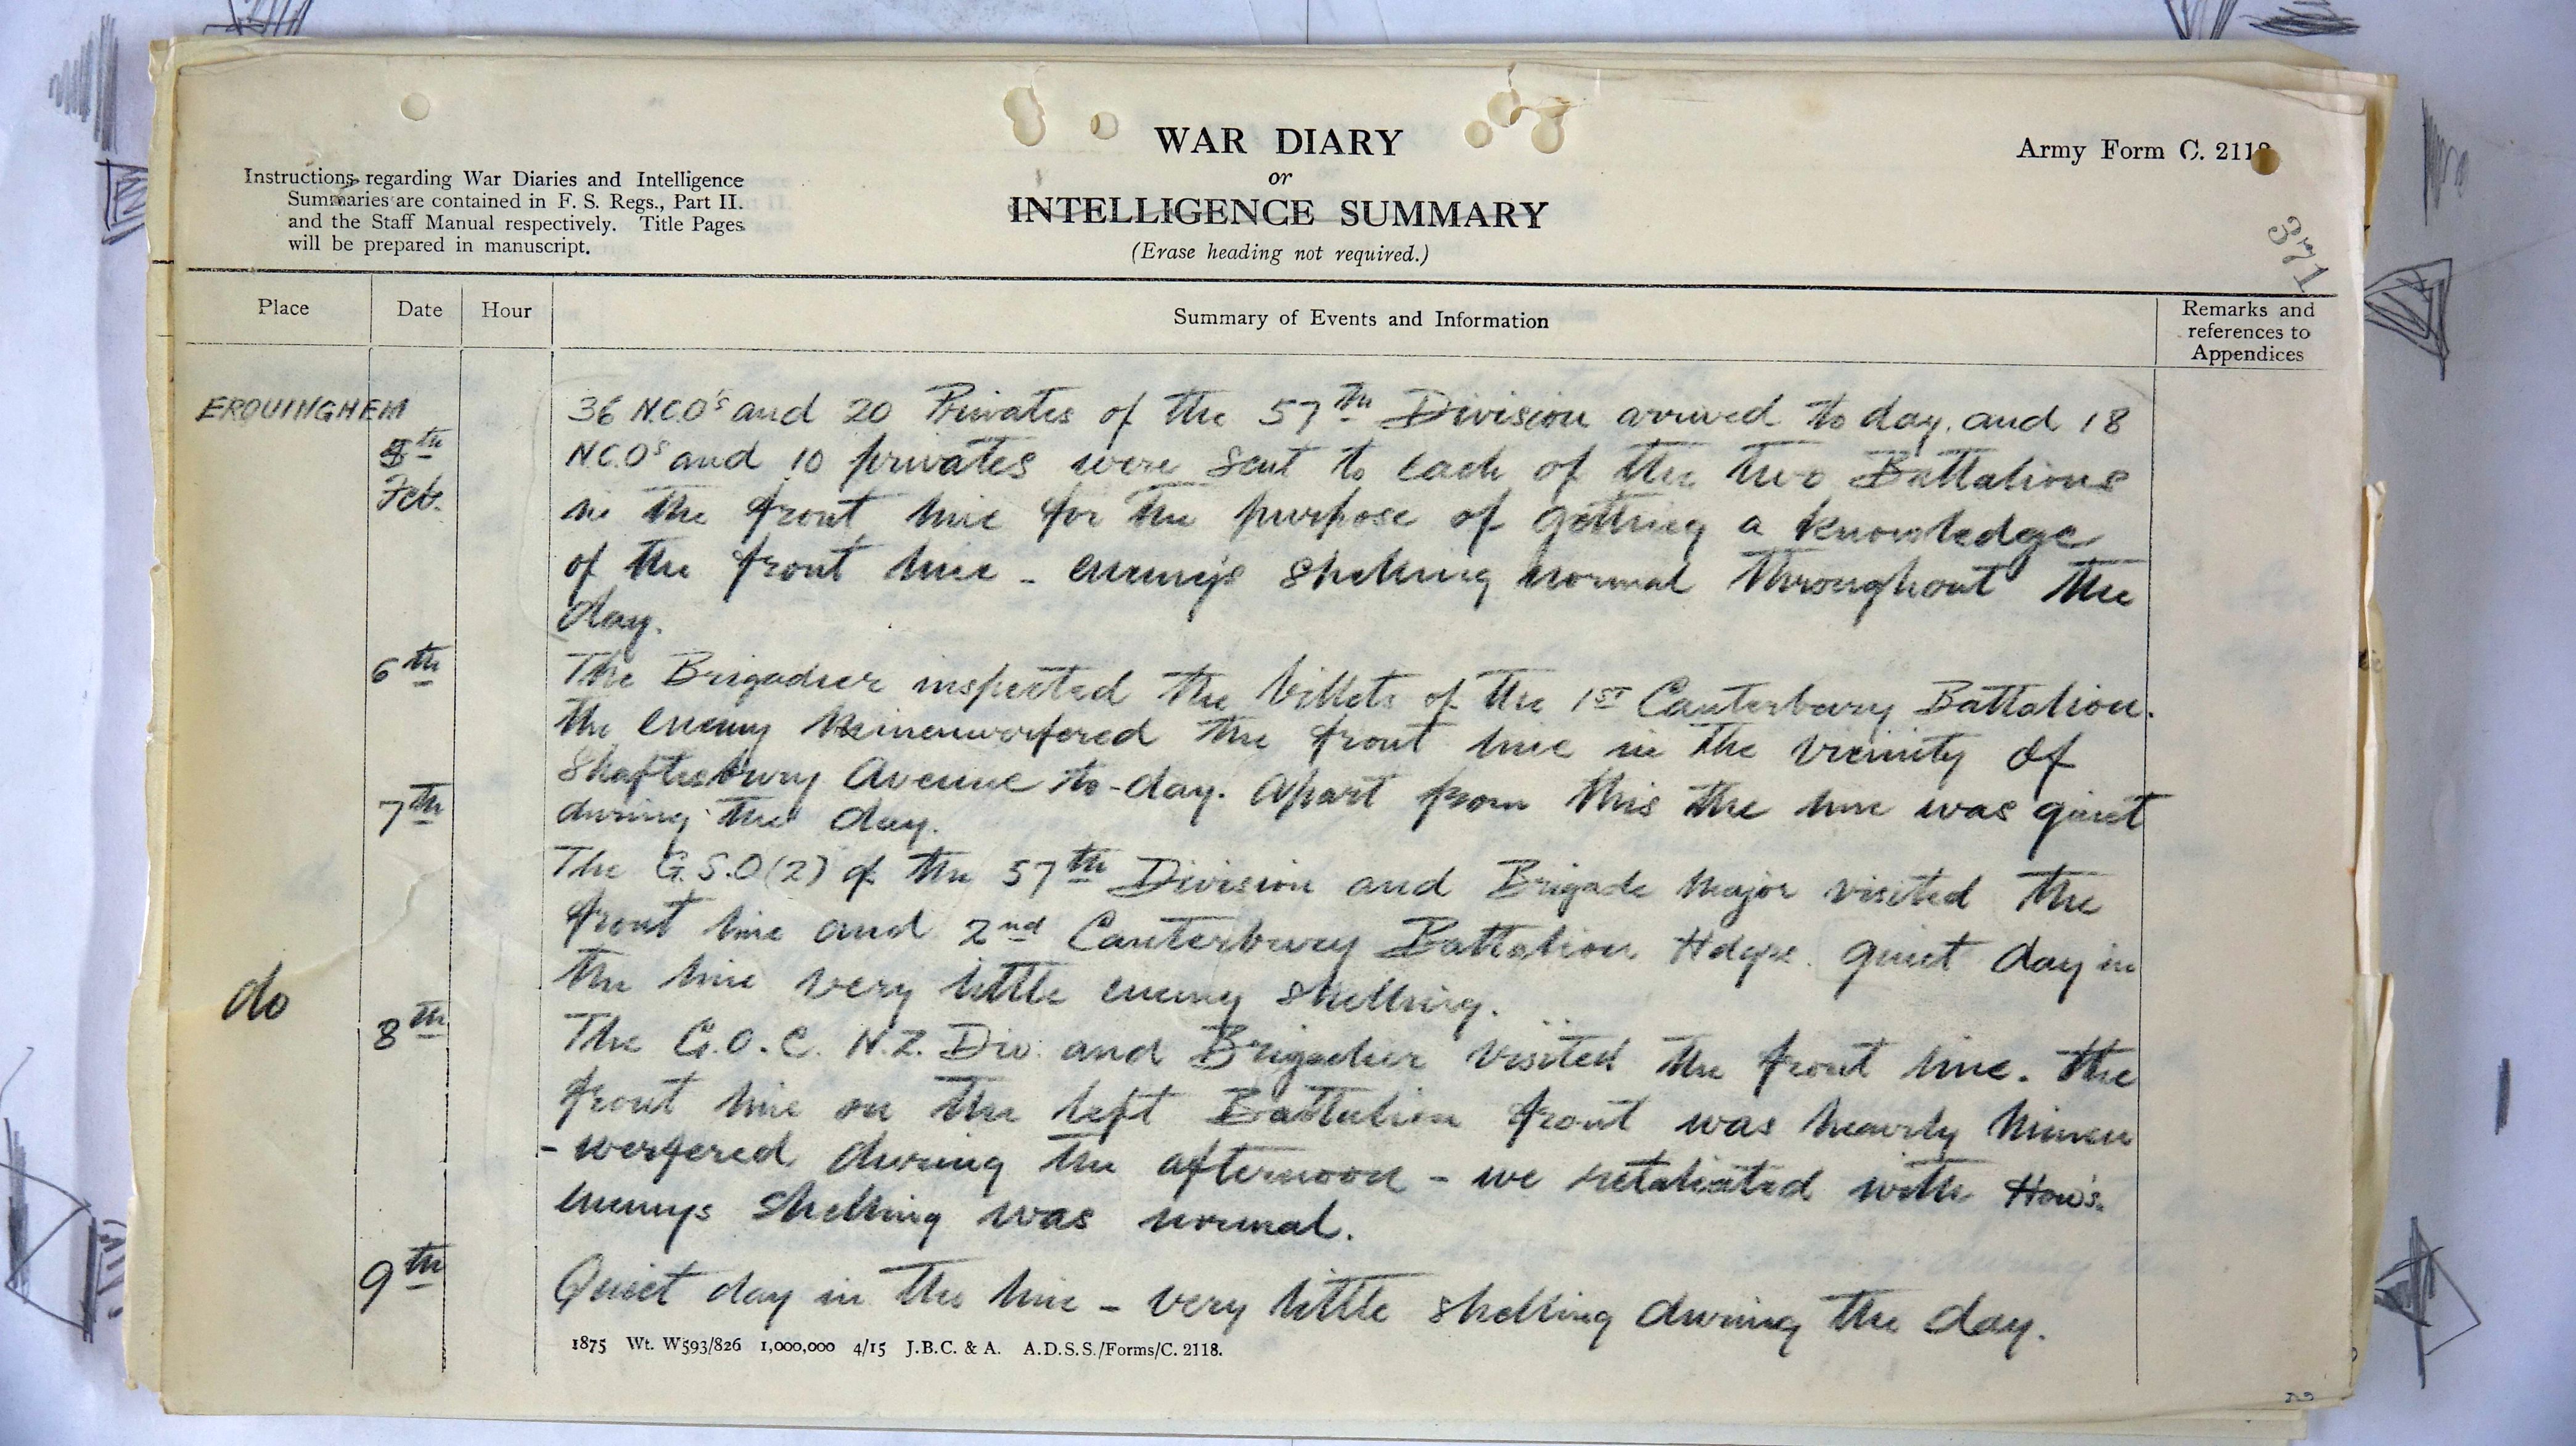 WAR DIARY
or
INTELLIGENCE SUMMARY
(Erase heading not required.)
Army Form C. 2118
Instructions regarding War Diaries and Intelligence
Summaries are contained in F. S. Regs., Part II.
and the Staff Manual respectively. Title Pages
will be prepared in manuscript.
Place Date Hour Summary of Events and Information Remarks and
references to
Appendices
ERQUINGHEM
5th
Feb.
36 N.C.O's and 20 Privates of the 57th Division arrived to day. and 18
N.C.Os and 10 privates were sent to each of the two Battalions
in the front line for the purpose of getting a knowledge
of the front line - enemy's shelling normal throughout the
day.
6th The Brigadier inspected the billets of the 1st Canterbury Battalion.
the enemy Minenwerfered the front line in the vicinity of
Shaftesbury Avenue to-day. Apart from this the line was quiet
during the day.
7th The G.S.O(2) of the 57th Division and Brigade Major visited the
front line and 2nd Canterbury Battalion Hdqrs. quiet day in
the line very little enemy shelling.
do 8th The G.O.C. N.Z. Div. and Brigadier visited the front line. the
front line on the left Battalion front was heavily minen
- werfered during the afternoon - we retaliated with How's.
enemys shelling was normal.
9th Quiet day in the line - very little shelling during the day.
1875 Wt. W593/826 1,000,000 4/15 J.B.C. & A. A.D.S.S./Forms/C. 2118.